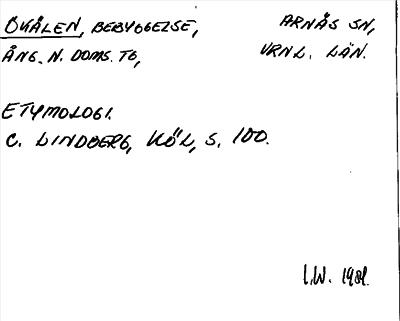 ÖVÅLEN, BEBYGGELSE, ARNÄS SN,
ÅNG. N. DOMS. TG, VRNL. LÄN.
ETYMOLOGI.
C. LINDBERG, KÖL, S. 100.
I.W. 1981.